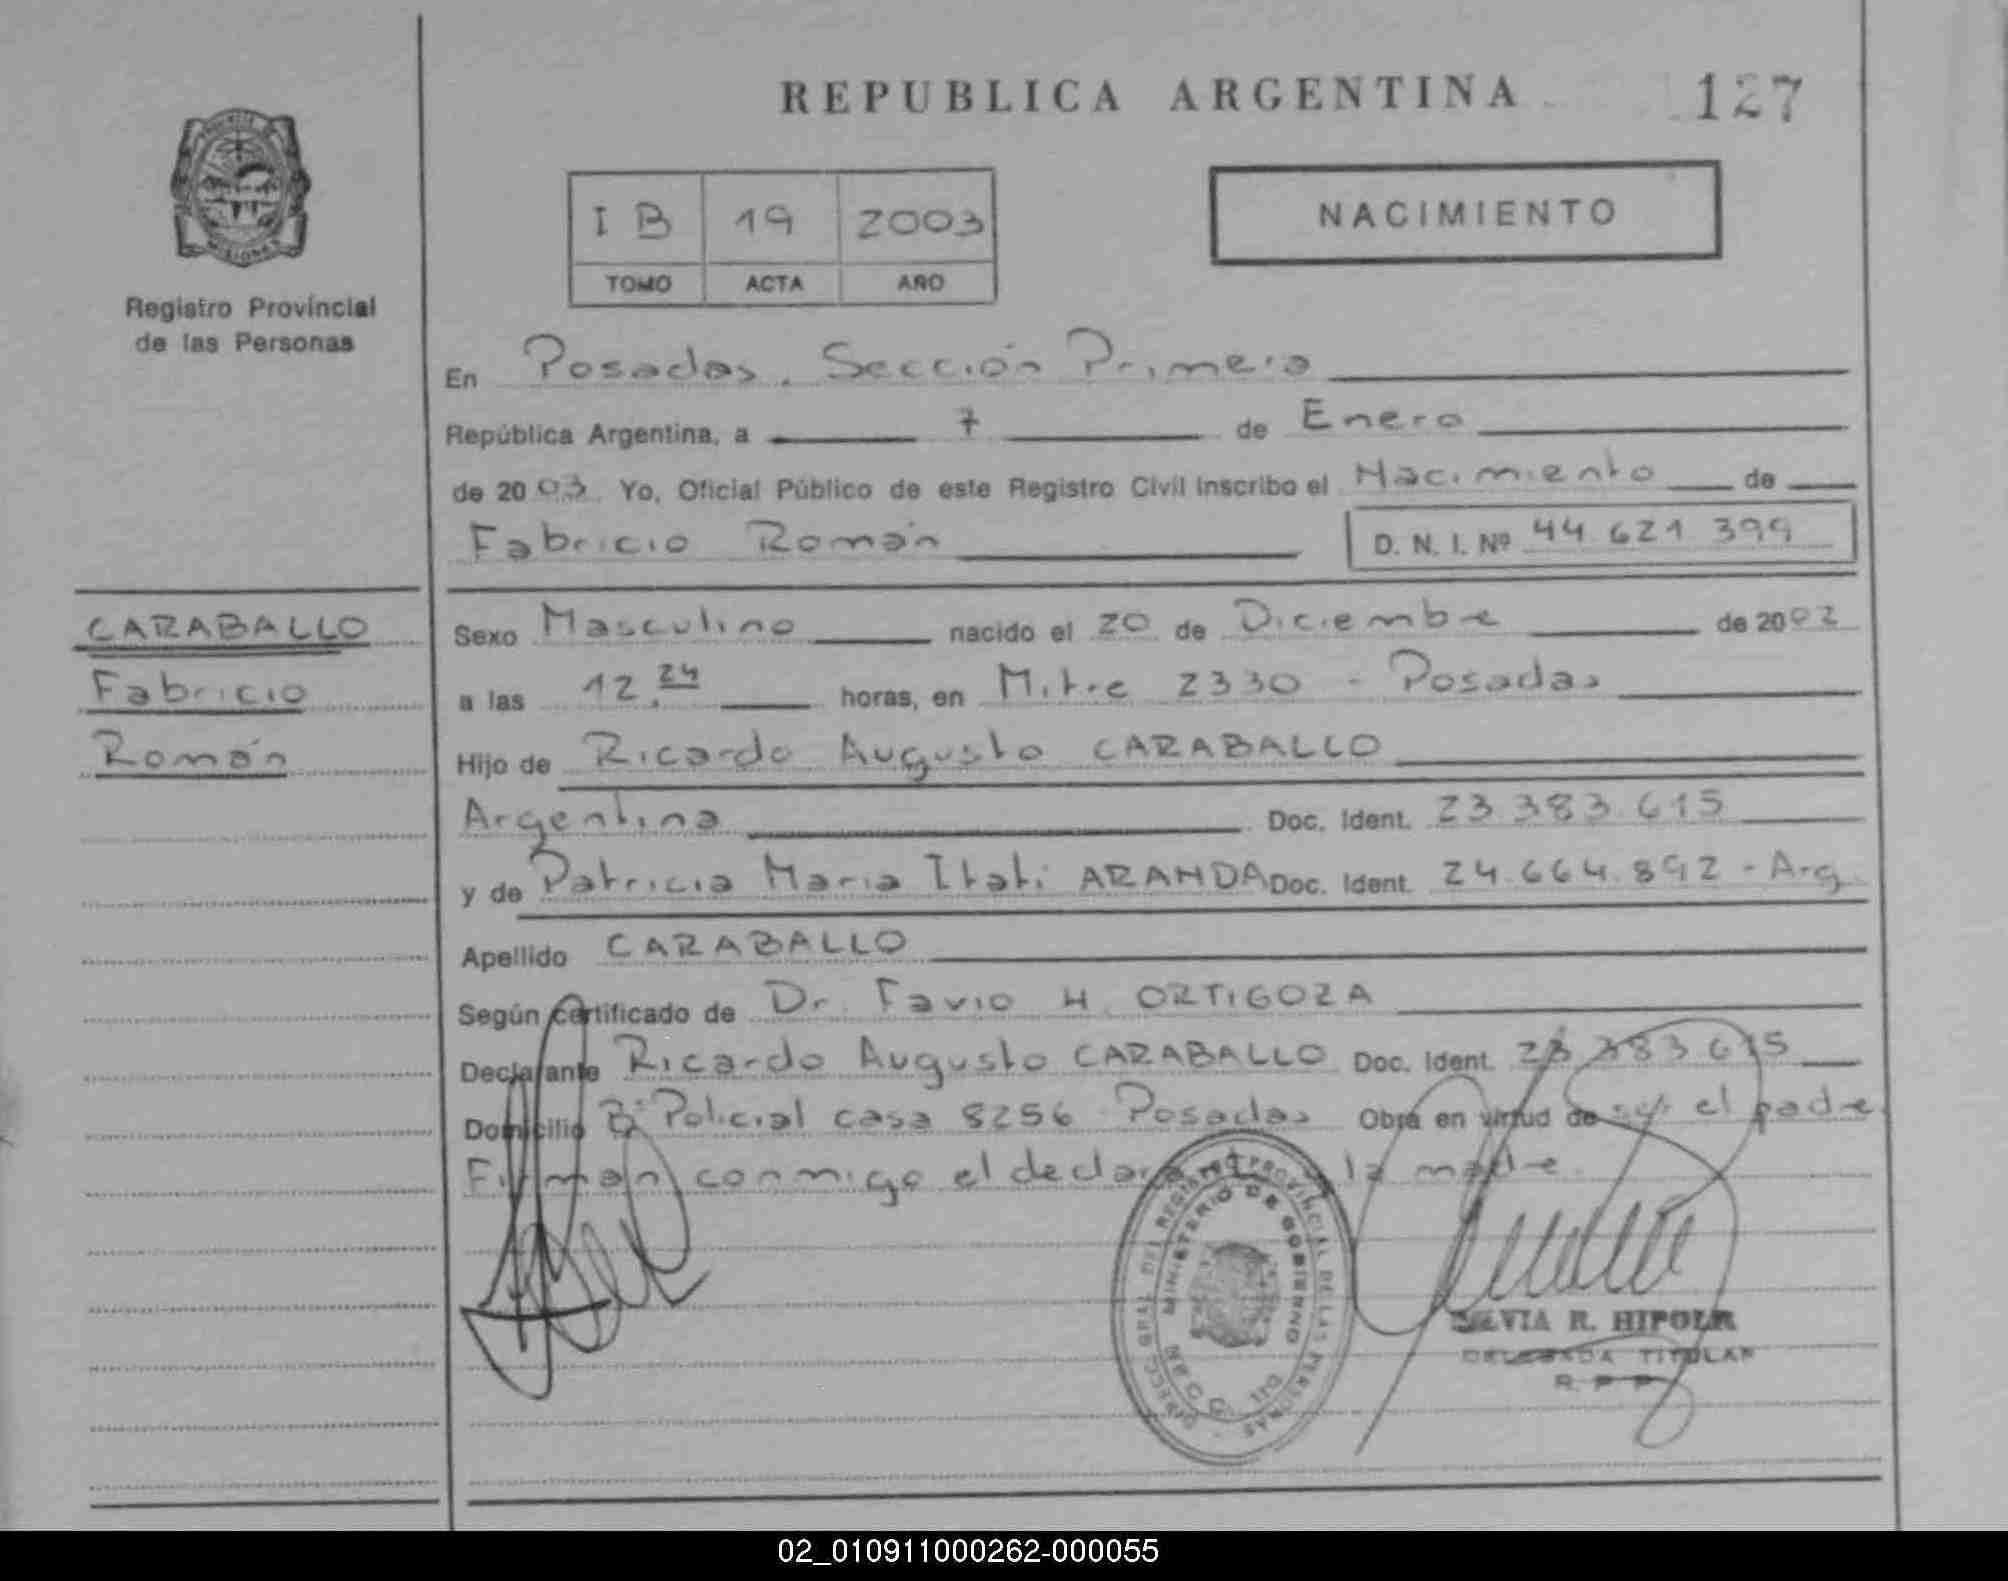 REPUBLICA ARGENTINA 127
PROVINCIA DE MISIONES
Registro Provincial
de las Personas
I B 19 2003
TOMO ACTA AÑO
NACIMIENTO
En Posadas, Sección Primera
República Argentina, a 7 de Enero
de 2003 Yo, Oficial Público de este Registro Civil inscribo el Nacimiento de
Fabricio Román D. N. I. Nº 44 621 399
CARABALLO
Fabricio
Román
Sexo Masculino nacido el 20 de Diciembre de 2002
a las 12.24 horas, en Mitre 2330 - Posadas
Hijo de Ricardo Augusto CARABALLO
Argentina Doc. Ident. 23.383.615
y de Patricia Maria Itati ARANDA Doc. Ident. 24.664.892 - Arg.
Apellido CARABALLO
Según certificado de Dr. Favio H. ORTIGOZA
Declarante Ricardo Augusto CARABALLO Doc. Ident. 23 383 615
Domicilio Bº Policial casa 8256 Posadas Obra en virtud de ser el padre
Firman conmigo el declarante y la madre.
DIRECC. GRAL. DEL REGISTRO PROVINCIAL DE LAS PERSONAS
MINISTERIO DE GOBIERNO
R. HIPOLR
DELEGADA TITULAR
R. P. P.
02_010911000262-000055